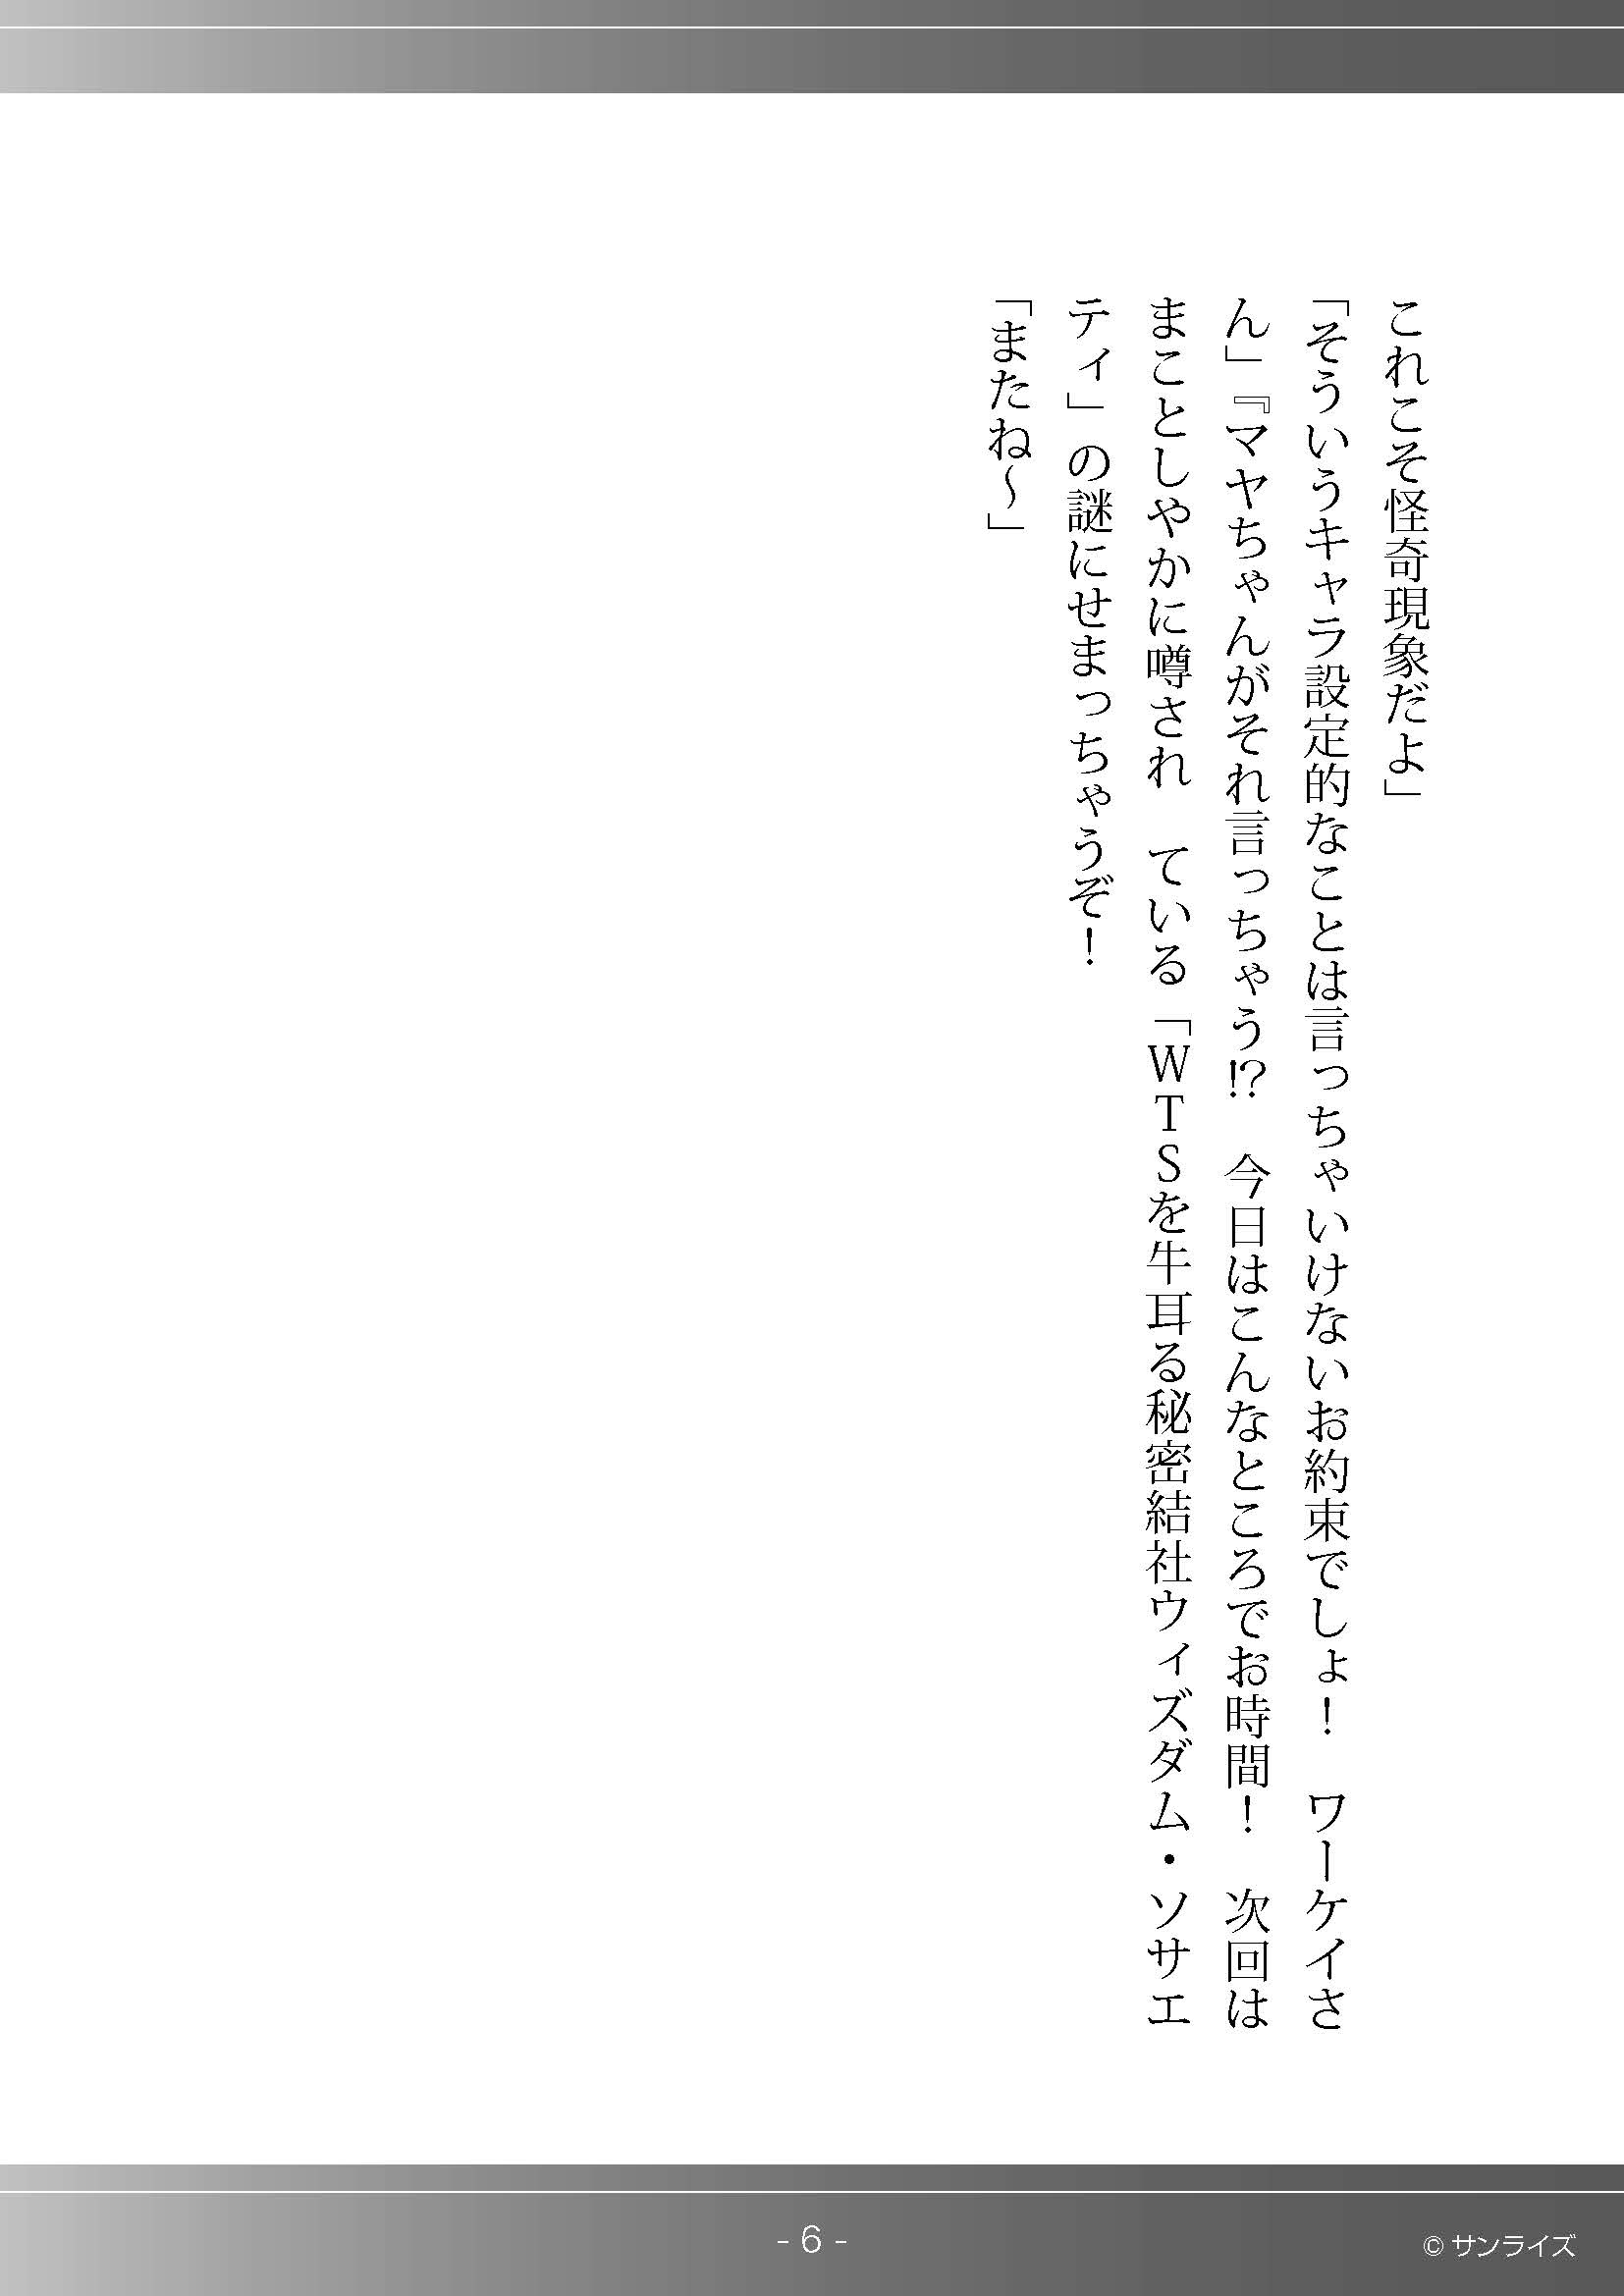 これこそ怪奇現象だよ」
「そういうキャラ設定的なことは言っちゃいけないお約束でしょ！　ワーケイさ
ん」『マヤちゃんがそれ言っちゃう!?　今日はこんなところでお時間！　次回は
まことしやかに噂され　ている「ＷＴＳを牛耳る秘密結社ウィズダム・ソサエ
ティ」の謎にせまっちゃうぞ！
「またね～」
- 6 -
© サンライズ